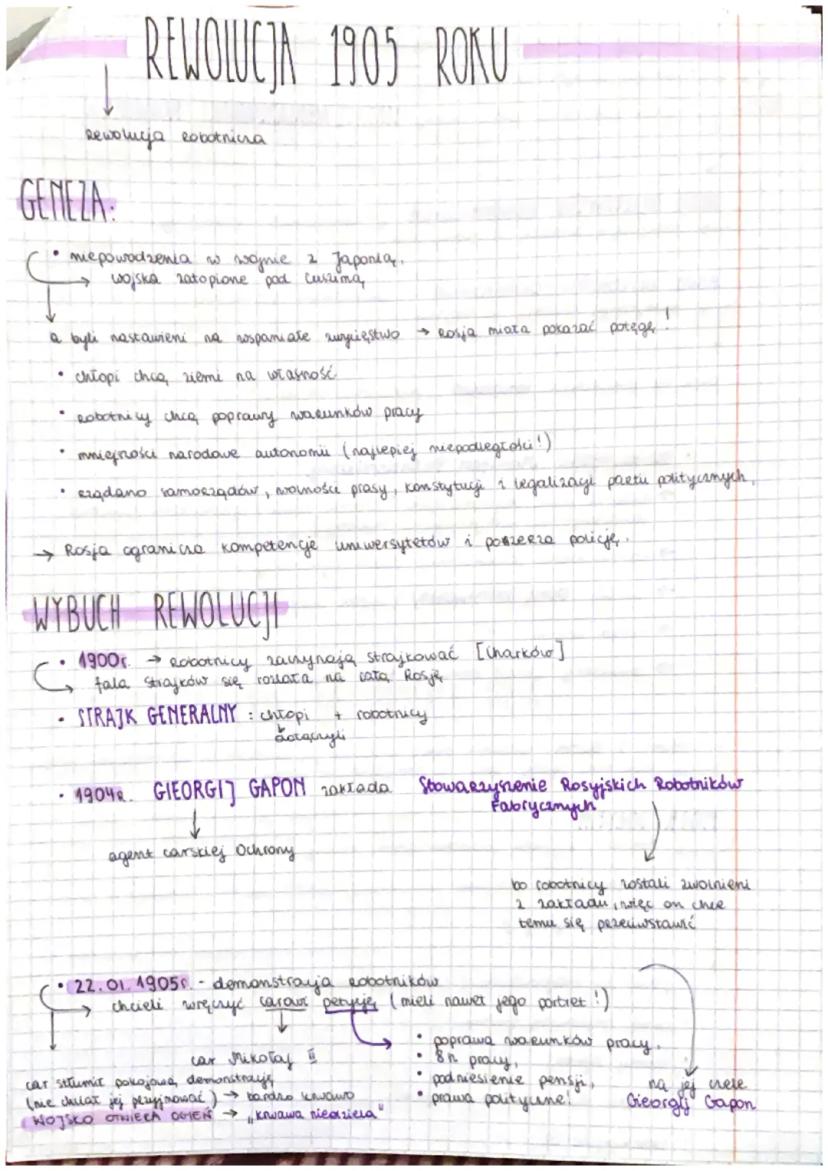 REWOLUCJA 1905 ROKU
rewolucja robotnicza
GENEZA:
• niepowodzenia w wojnie z Japonią.
→ wojska zatopione pod Cuszimą
a byli nastawieni na wspaniałe zwycięstwo → Rosja miała pokazać potęgę!
• chłopi chcą ziemi na własność
• robotnicy chcą poprawy warunków pracy
• mniejności narodowe autonomii (najlepiej niepodległości!)
• rządano samorządów, wolności prasy, konstytucji i legalizacji partii politycznych.
→ Rosja ogranicza kompetencje uniwersytetów i poszerza policję.
WYBUCH REWOLUCJI
• 1900r. → robotnicy zaczynają strajkować [Charków]
→ fala strajków się rozlała na całą Rosję
• STRAJK GENERALNY : chłopi + robotnicy
dołączyli
• 1904r. GIEORGIJ GAPON zakłada Stowarzyszenie Rosyjskich Robotników
Fabrycznych
agent carskiej Ochrony
bo robotnicy zostali zwolnieni
z zakładu, więc on chce
temu się przeciwstawić
• 22.01.1905r. - demonstracja robotników
→ chcieli wręczyć carowi petycję (mieli nawet jego portret!)
car Mikołaj II
• poprawa warunków pracy.
• 8h pracy,
• podniesienie pensji,
• prawa polityczne!
na jej czele
Gieorgij Gapon
car stłumił pokojową demonstrację
(nie chciał jej przyjmować) → bardzo krwawo
WOJSKO OTWIERA OGIEŃ → „krwawa niedziela"